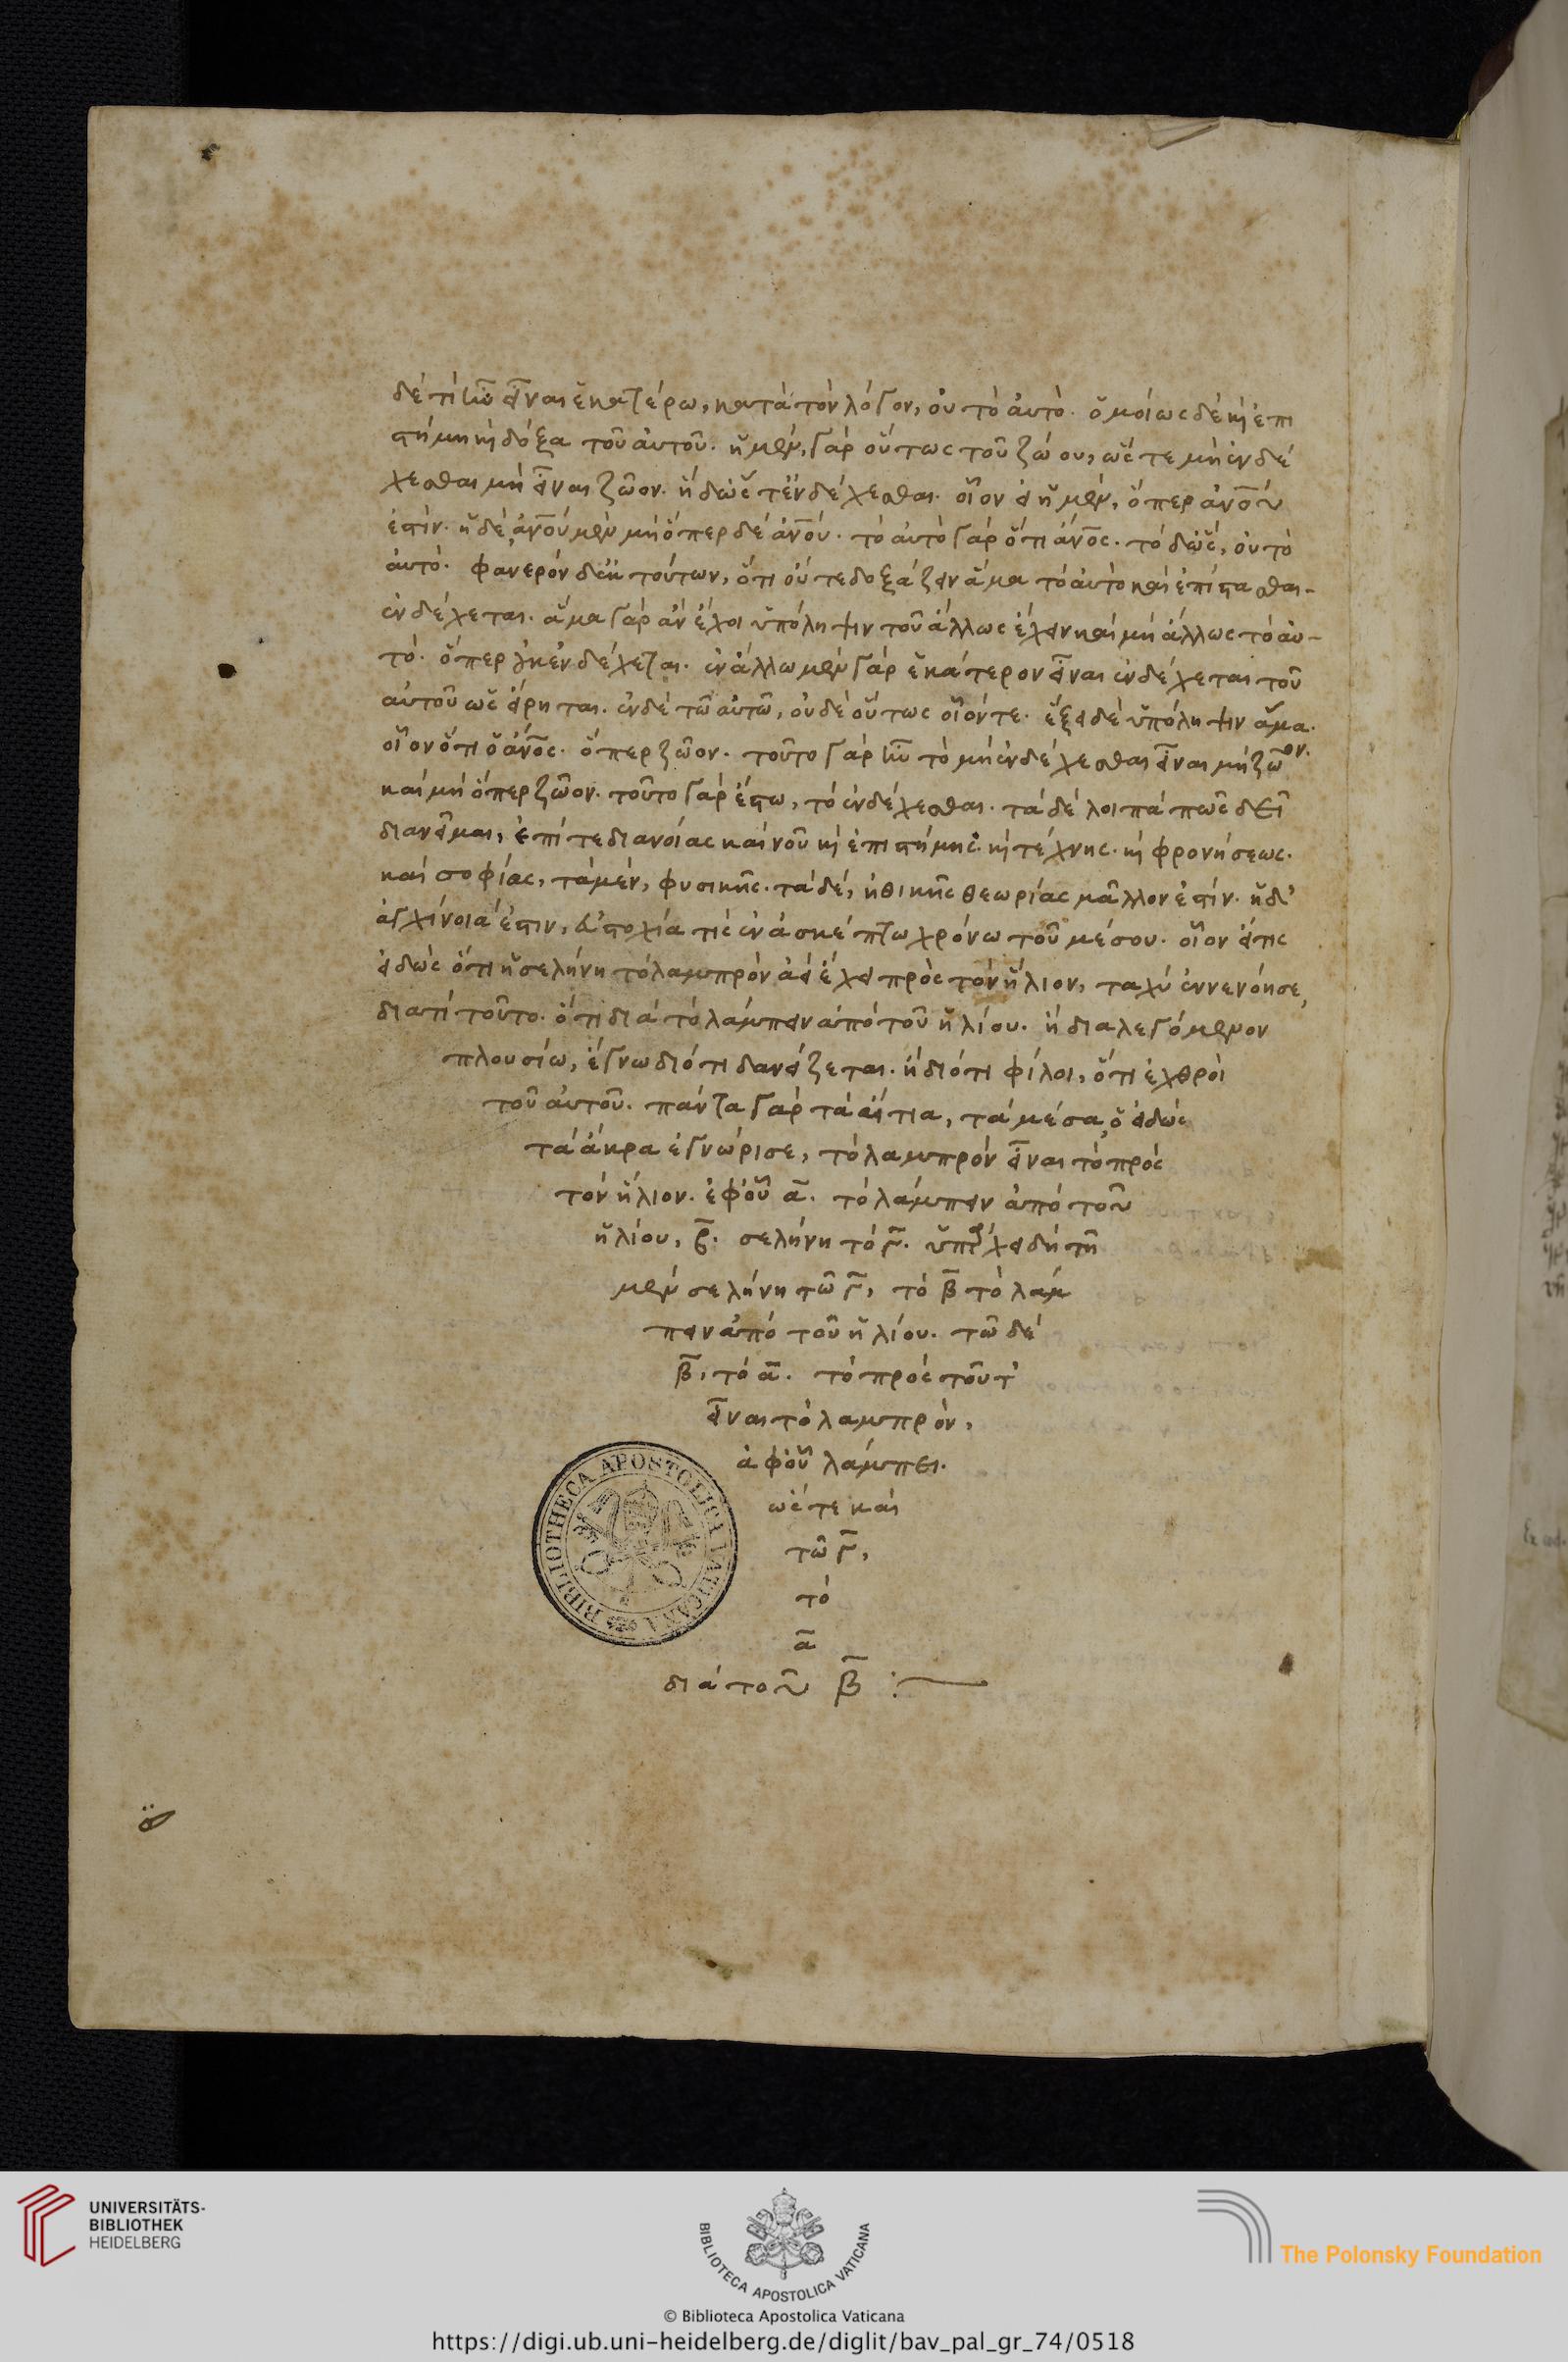 δέ τί ἦν εἶναι ἑκατέρω, κατὰ τὸν λόγον, οὐ τὸ αὐτό. ὁμοίως δὲ κὶ ἐπι
στήμη κὶ δόξα τοῦ αὐτοῦ. ἡ μὲν, γὰρ οὕτως τοῦ ζώου, ὥστε μὴ ἐνδέ
χεσθαι μὴ εἶναι ζῶον. ἡ δ' ὥστ' ἐνδέχεσθαι. οἷον εἰ ἡ μὲν, ὅπερ ἀν̅ου̅
ἐστίν. ἡ δὲ, ἀν̅ου̅ μὲν μὴ ὅπερ δὲ ἀν̅ου̅. τὸ αὐτὸ γὰρ ὅτι ἄν̅ος. τὸ δ' ὡς, οὐ τὸ
αὐτό. φανερὸν δ' ἐκ τούτων, ὅτι οὔτε δοξάζειν ἅμα τὸ αὐτὸ καὶ ἐπίστασθαι-
ἐνδέχεται. ἅμα γὰρ ἂν ἔχοι ὑπόληψιν τοῦ ἄλλως ἔχειν καὶ μὴ ἄλλως τὸ αὐ-
τό. ὅπερ οὐκ ἐνδέχεται. ἐν ἄλλω μὲν γὰρ ἑκάτερον εἶναι ἐνδέχεται τοῦ
αὐτοῦ ὡς εἴρηται. ἐν δὲ τῶ αὐτῶ, οὐδὲ οὕτως οἷόν τε. ἕξει δὲ ὑπόληψιν ἅμα.
οἷον ὅτι ὁ ἄν̅ος. ὅπερ ζῶον. τοῦτο γὰρ ἦν τὸ μὴ ἐνδέχεσθαι εἶναι μὴ ζῶον.
καὶ μὴ ὅπερ ζῶον. τοῦτο γὰρ ἔστω, τὸ ἐνδέχεσθαι. τὰ δὲ λοιπὰ πῶς δεῖ
διανεῖμαι, ἐπί τε διανοίας καὶ νοῦ κὶ ἐπιστήμης. κὶ τέχνης. κὶ φρονήσεως.
καὶ σοφίας, τὰ μὲν, φυσικῆς. τὰ δὲ, ἠθικῆς θεωρίας μᾶλλον ἐστίν. ἡ δ'
ἀγχίνοιά ἐστιν, εὐστοχία τις ἐν ἀσκέπτω χρόνω τοῦ μέσου. οἷον εἴ τις
εἰδὼς ὅτι ἡ σελήνη τὸ λαμπρὸν ἀεὶ ἔχει πρὸς τὸν ἥλιον, ταχὺ ἐννενόησε,
διατί τοῦτο. ὅτι διὰ τὸ λάμπειν ἀπὸ τοῦ ἡλίου. ἢ διαλεγόμενον
πλουσίω, ἔγνω διότι δανείζεται. ἢ διότι φίλοι, ὅτι ἐχθροὶ
τοῦ αὐτοῦ. πάντα γὰρ τὰ αἴτια, τὰ μέσα, ὁ εἰδὼς
τὰ ἄκρα ἐγνώρισε, τὸ λαμπρὸν εἶναι τὸ πρὸς
τὸν ἥλιον. ἐφ' οὗ α̅. τὸ λάμπειν ἀπὸ τοῦ
ἡλίου, β̅. σελήνη τὸ γ̅. ὑπάρχει δὴ τῆ
μὲν σελήνη τῶ γ̅, τὸ β̅ τὸ λάμ
πειν ἀπὸ τοῦ ἡλίου. τῶ δὲ
β̅, τὸ α̅. τὸ πρὸς τοῦτ'
εἶναι τὸ λαμπρὸν,
ἀφ' οὗ λάμπει.
ὥστε καὶ
τῶ γ̅,
τὸ
α̅
διὰ τοῦ β̅ :
BIBLIOTHECA APOSTOLICA VATICANA
UNIVERSITÄTS-
BIBLIOTHEK
HEIDELBERG
BIBLIOTECA APOSTOLICA VATICANA
The Polonsky Foundation
© Biblioteca Apostolica Vaticana
https://digi.ub.uni-heidelberg.de/diglit/bav_pal_gr_74/0518